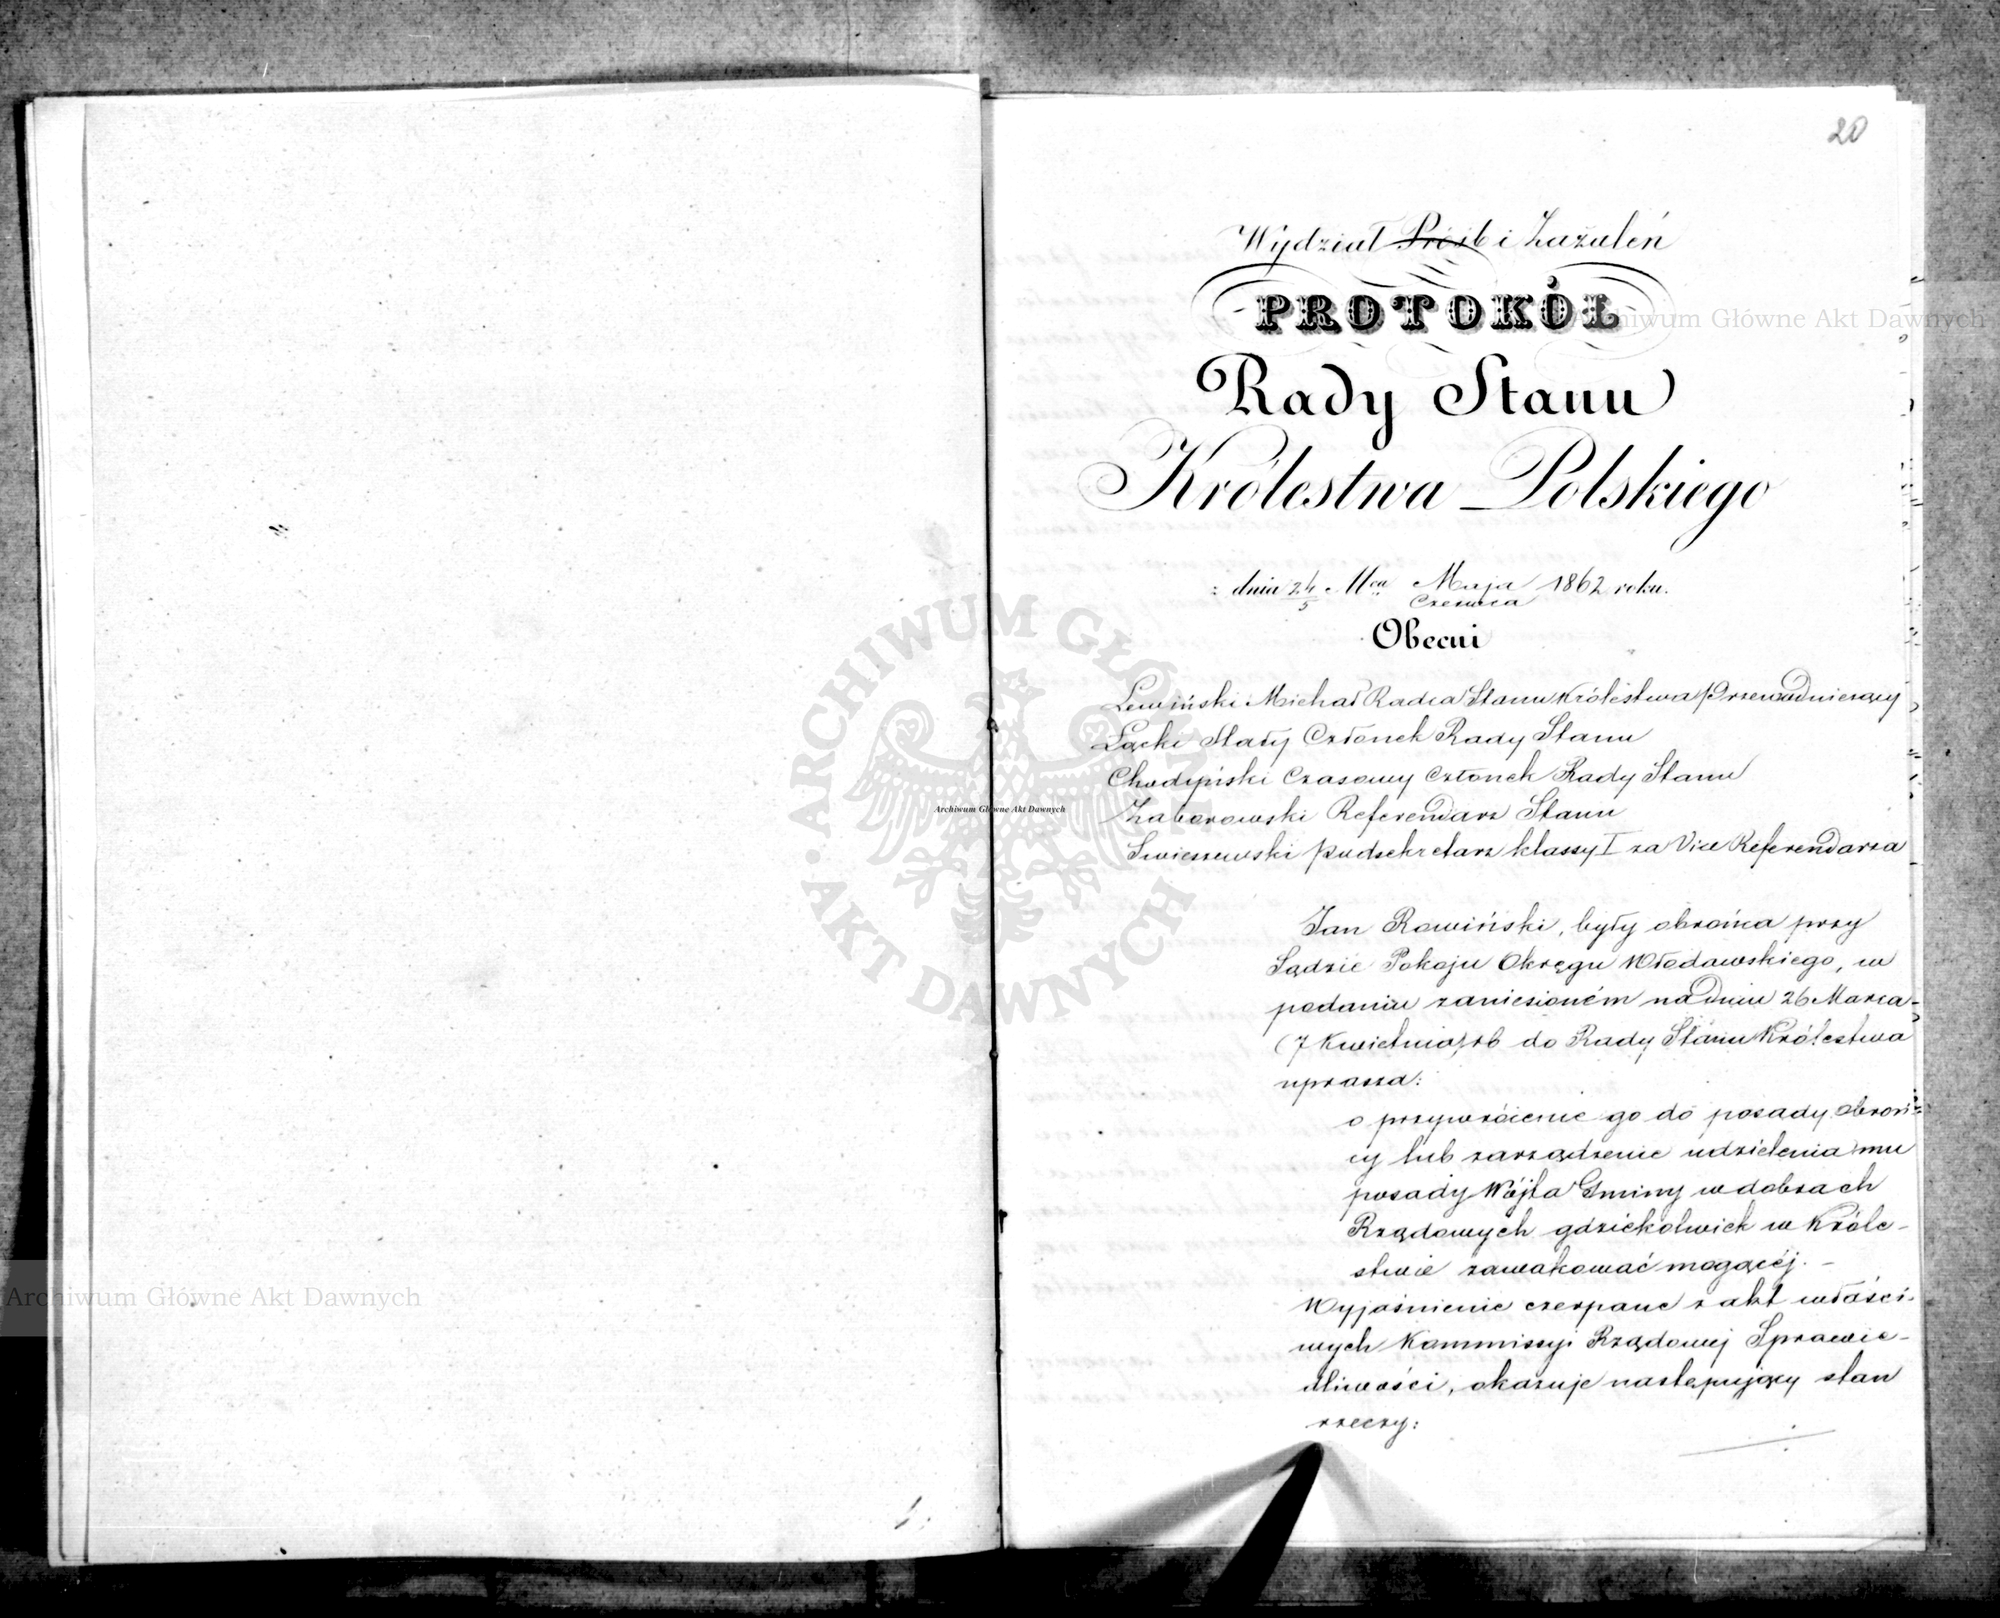 20
Wydział Próśb i Zażaleń
PROTOKÓŁ
Rady Stanu
Królestwa Polskiego
dnia 24/5 Mca Maja/Czerwca 1862 roku.
Obecni
Lewiński Michał Radca Stanu Królestwa Przewodniczący
Łącki Stały Członek Rady Stanu
Chodyński Czasowy Członek Rady Stanu
Zaborowski Referendarz Stanu
Swieszewski podsekretarz klassy I za Vice Referendarza
Jan Rowiński, były obrońca przy
Sądzie Pokoju Okręgu Włodawskiego, w
podaniu zaniesioném na Dniu 26 Marca
(7 Kwietnia) rb do Rady Stanu Królestwa
uprasza:
o przywrócenie go do posady obroń-
cy lub zarządzenie udzielenia mu
posady Wójta Gminy w dobrach
Rządowych gdziekolwiek w Króle-
stwie zawakować mogącéj. –
Wyjaśnienie czerpane z akt właści-
wych Kommissyi Rządowej Sprawie-
dliwości, okazuje następujący stan
rzeczy:
Archiwum Główne Akt Dawnych
ARCHIWUM GŁÓWNE AKT DAWNYCH
Archiwum Główne Akt Dawnych
Archiwum Główne Akt Dawnych